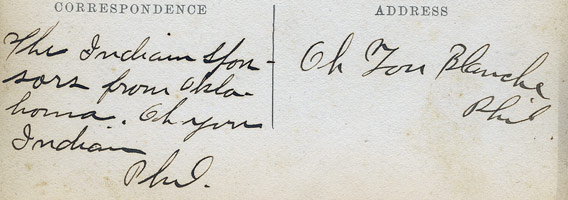 CORRESPONDENCE
The Indian Spon-
sors from Okla-
homa. Oh you
Indian
Phil.
ADDRESS
Oh You Blanche
Phil.